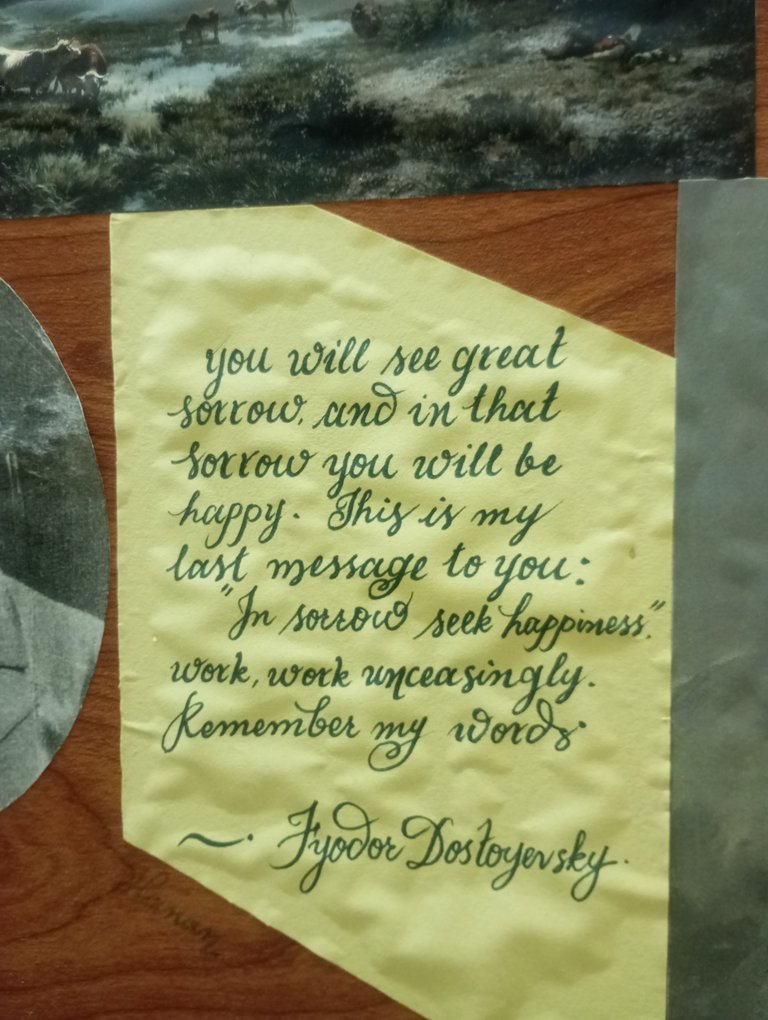 you will see great
sorrow, and in that
sorrow you will be
happy. This is my
last message to you:
"In sorrow seek happiness".
work, work unceasingly.
Remember my words.
~. Fyodor Dostoyevsky.
Hanan